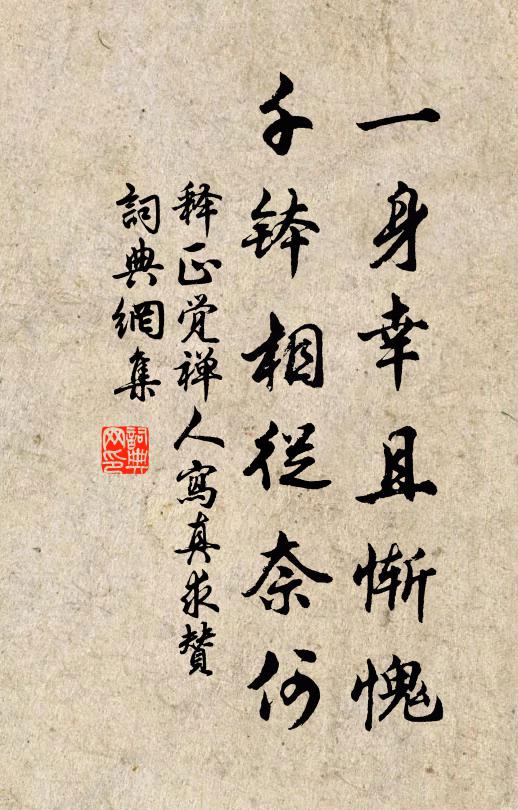 一身幸且惭愧
千钵相從奈何
释正觉禅人寫真求賛
詞典網集
詞典网印